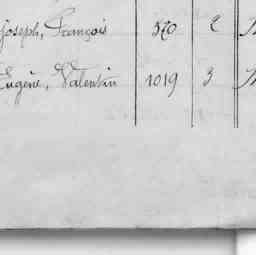 Joseph, François 570 2
Eugène, Valentin 1019 3